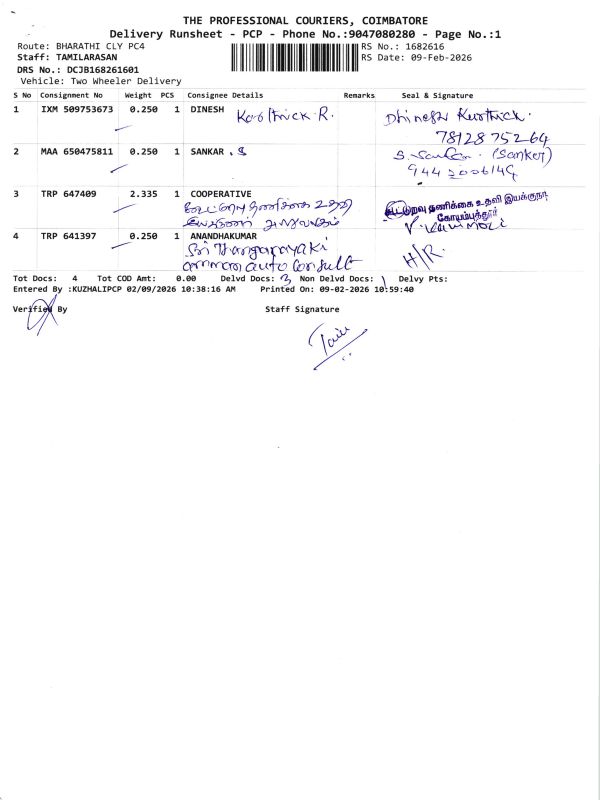 THE PROFESSIONAL COURIERS, COIMBATORE
Delivery Runsheet - PCP - Phone No.:9047080280 - Page No.:1
Route: BHARATHI CLY PC4
RS No.: 1682616
Staff: TAMILARASAN
RS Date: 09-Feb-2026
DRS No.: DCJB168261601
Vehicle: Two Wheeler Delivery
S No Consignment No Weight PCS Consignee Details Remarks Seal & Signature
1 IXM 509753673 0.250 1 DINESH
Karthick. R. Dhinesh Karthick.
78128 75264
2 MAA 650475811 0.250 1 SANKAR . S
S. Sankar. (Sankar)
944 2006149
3 TRP 647409 2.335 1 COOPERATIVE
கூட்டுறவு தணிக்கை உதவி
கூட்டுறவு தணிக்கை உதவி இயக்குநர்
கோயம்புத்தூர்
4 TRP 641397 0.250 1 ANANDHAKUMAR
Sri Thanganayaki
amman auto Consult
H/R.
Tot Docs: 4 Tot COD Amt: 0.00 Delvd Docs: 3 Non Delvd Docs: 1 Delvy Pts:
Entered By :KUZHALIPCP 02/09/2026 10:38:16 AM Printed On: 09-02-2026 10:59:40
Verified By Staff Signature